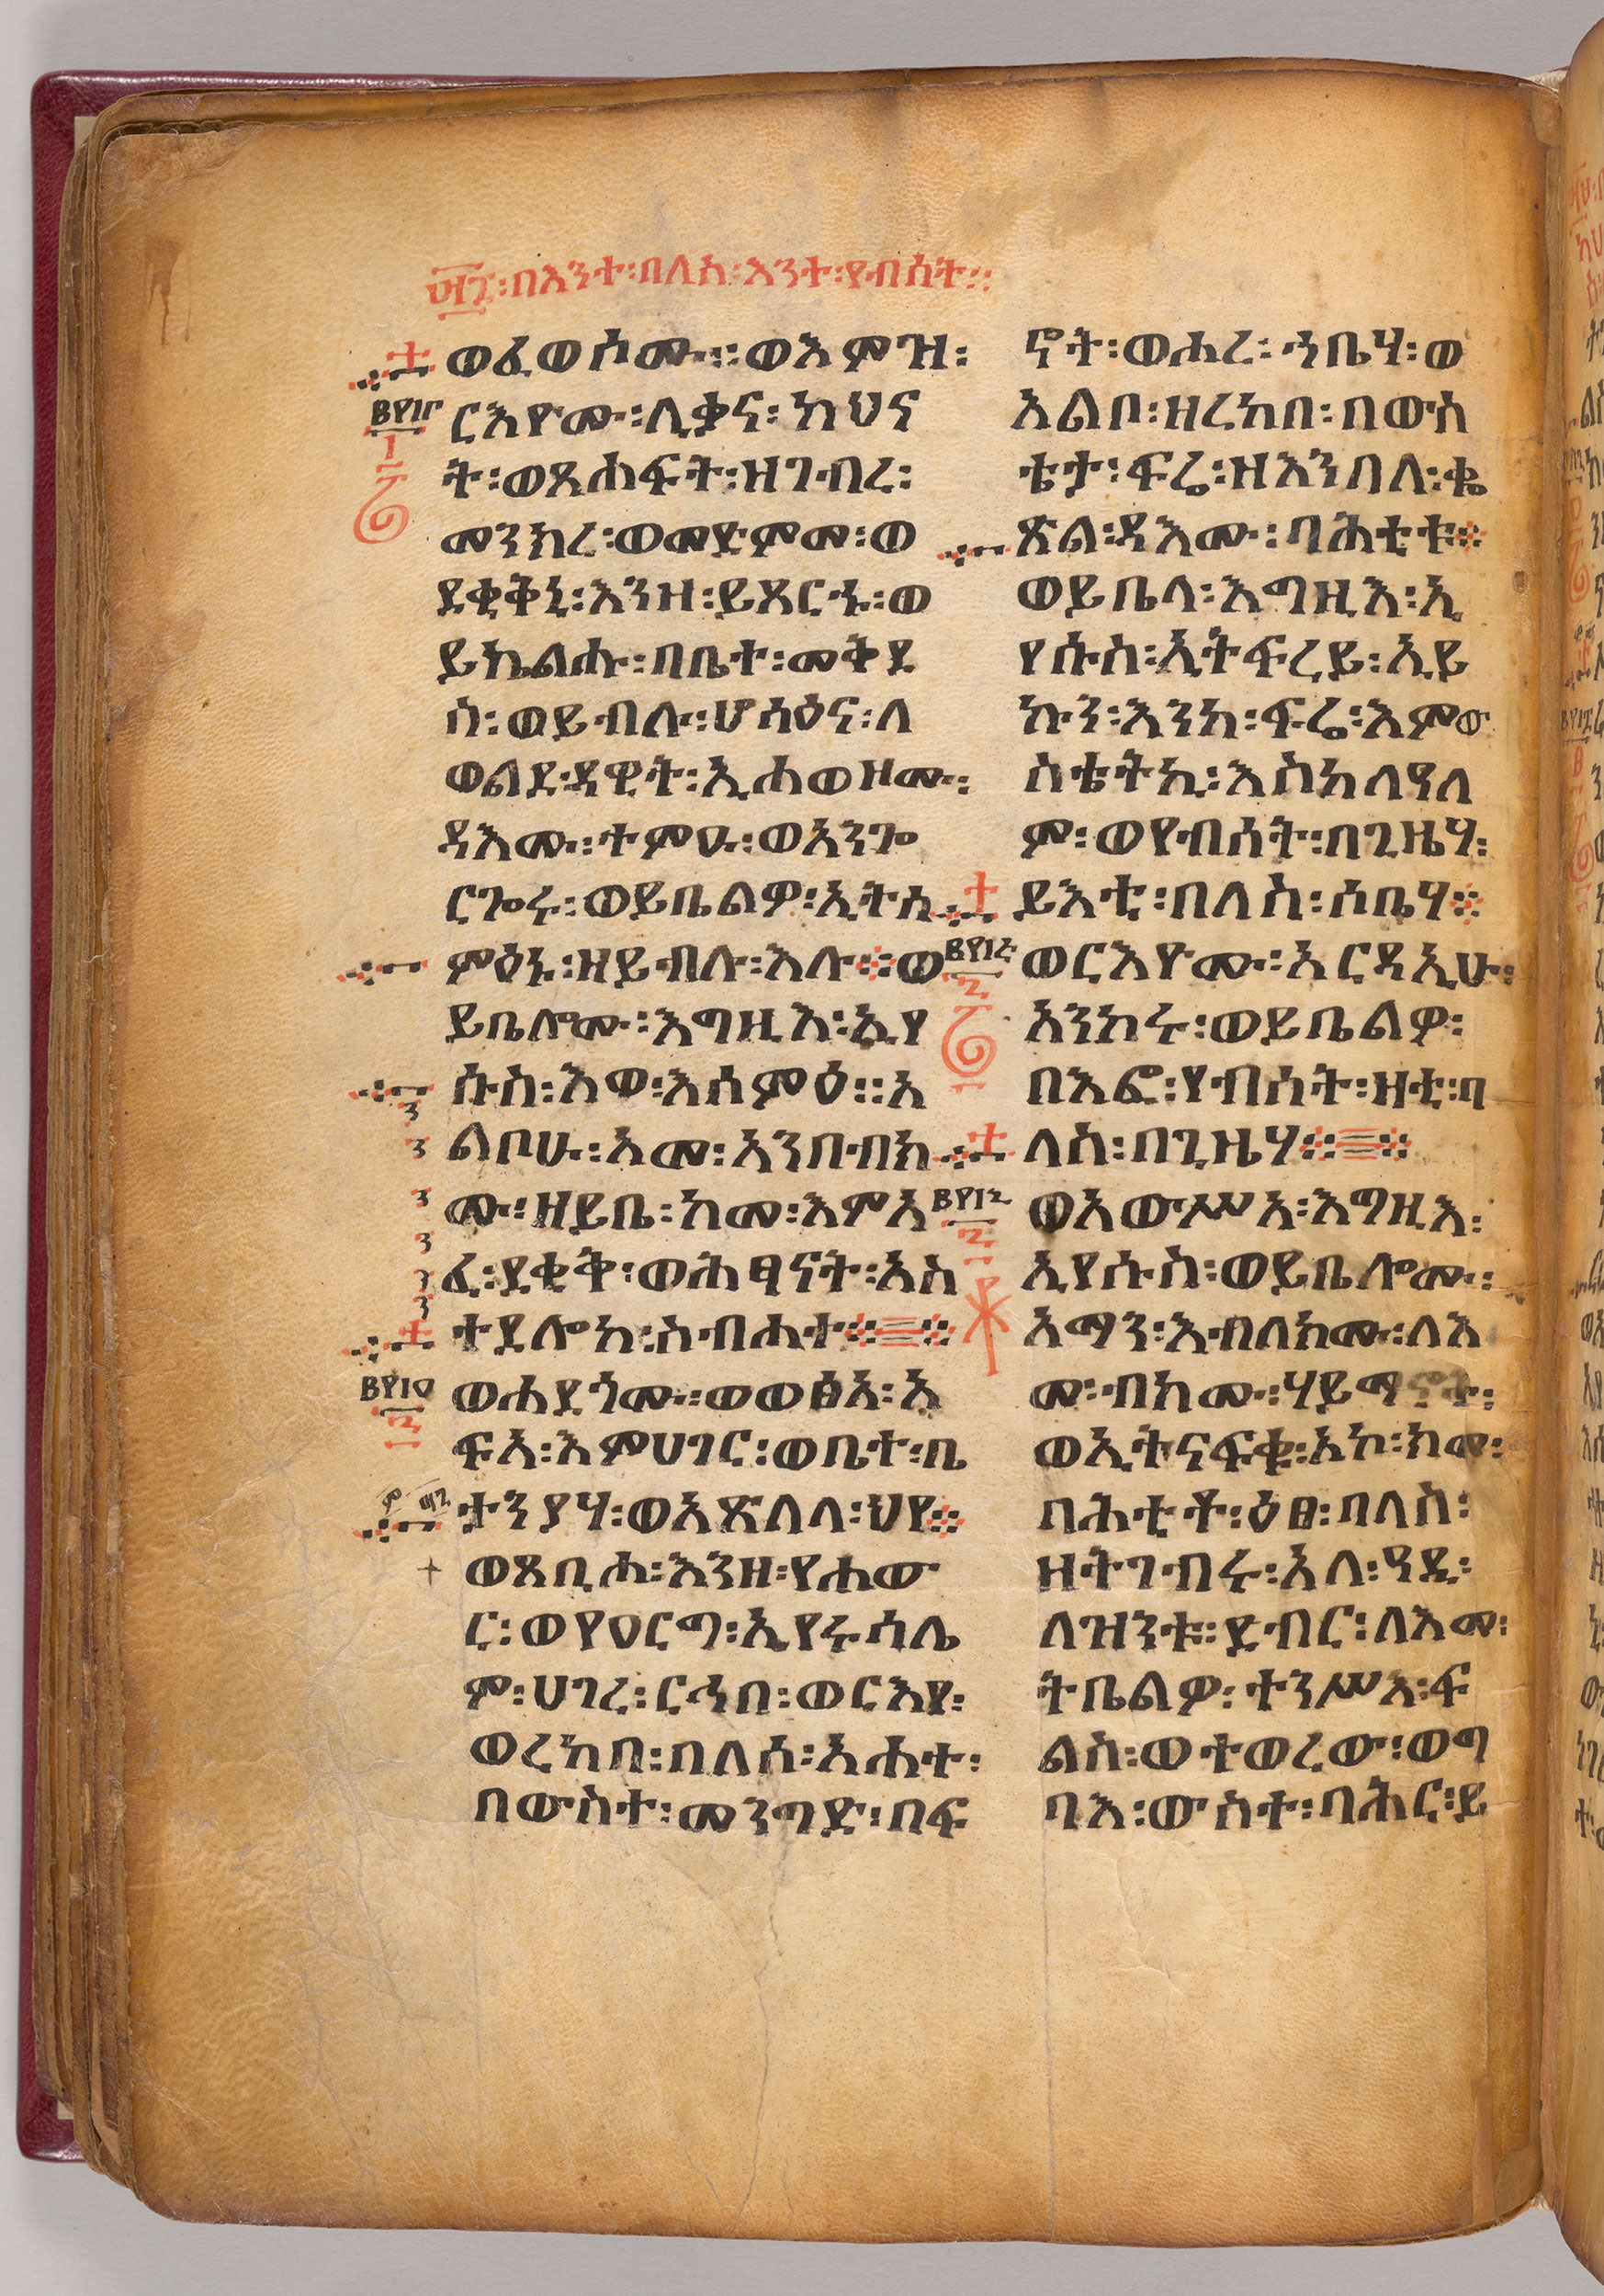 በእንተ፡በለስ፡እንተ፡የብሰት።
ወፈወሶሙ።ወእምዝ፡
ርእዮሙ፡ሊቃና፡ካህና
ት፡ወጸሐፍት፡ዘገብረ፡
መንክረ፡ወመድምመ፡ወ
ደቂቅኒ፡እንዘ፡ይጸርኁ፡ወ
ይኬልሑ፡በቤተ፡መቅደ
ስ፡ወይብሉ፡ሆሳዕና፡ለ
ወልደ፡ዳዊት፡ኢሐወዘሙ፡
ዳእሙ፡ተምዑ፡ወአንጐ
ርጐሩ፡ወይቤልዎ፡ኢትሰ
ምዕኑ፡ዘይብሉ፡እሉ፨ወ
ይቤሎሙ፡እግዚእ፡ኢየ
ሱስ፡እወ፡እሰምዕ፡፡አ
ልቦሁ፡አመ፡አንበብክ
ሙ፡ዘይቤ፡ከመ፡እምአ
ፈ፡ደቂቅ፡ወሕፃናት፡አስ
ተደሎከ፡ስብሐተ፨፨
ወሐደጎሙ፡ወወፅአ፡አ
ፍአ፡እምሀገር፡ወቤተ፡ቢ
ታንያሃ፡ወአጽለለ፡ህየ፨
ወጸቢሐ፡እንዘ፡የሐው
ር፡ወየዐርግ፡ኢየሩሳሌ
ም፡ሀገረ፡ርኅበ፡ወርእየ፡
ወረከበ፡በለሰ፡አሐተ፡
በውስተ፡መንግድ፡በፍ
ኖት፡ወሐረ፡ኀቤሃ፡ወ
አልቦ፡ዘረከበ፡በውስ
ቴታ፡ፍሬ፡ዘእንበለ፡ቈ
ጽል፡ዳእሙ፡ባሕቲቱ፨
ወይቤላ፡እግዚእ፡ኢ
የሱስ፡ኢትፍረይ፡ኢይ
ኩን፡እንከ፡ፍሬ፡እምው
ስቴትኪ፡እስከ ለዓለ
ም፡ወየብሰት፡በጊዜሃ፡
ይእቲ፡በለስ፡ሶቤሃ፨
ወርእዮሙ፡አርዳኢሁ፡
አንከሩ፡ወይቤልዎ፡
በእፎ፡የብሰት፡ዛቲ፡በ
ለስ፡በጊዜሃ፨፨
ወአውሥአ፡እግዚእ፡
ኢየሱስ፡ወይቤሎሙ፡
አማን፡እብለክሙ፡ለእ
መ፡ብክሙ፡ሃይማኖት፡
ወኢትናፍቁ፡አኮ፡ከመ፡
ባሕቲቶ፡ዕፀ፡በለስ፡
ዘትገብሩ፡አላ፡ዓዲ፡
ለዝንቱ፡ደብር፡ለእመ፡
ትቤልዎ፡ተንሥእ፡ፍ
ልስ፡ወተወረው፡ወግ
ባእ፡ውስተ፡ባሕር፡ይ